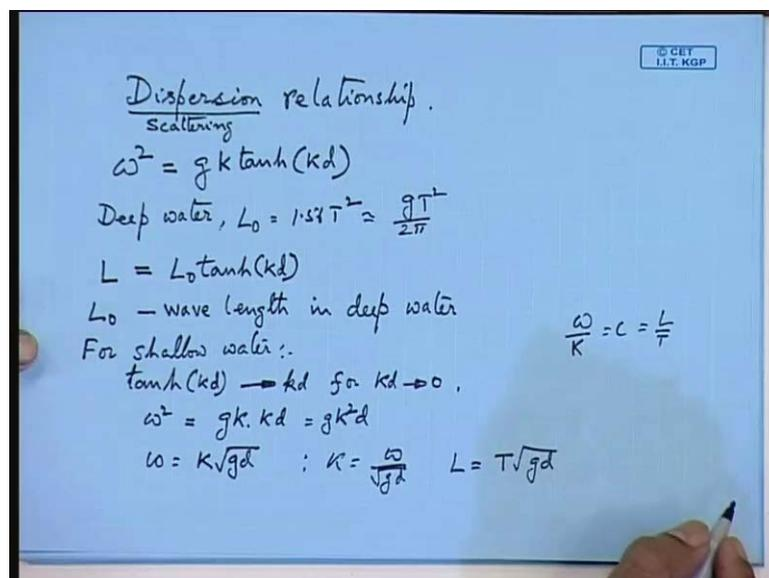 © CET
I.I.T. KGP
Dispersion relationship.
Scattering
ω² = gk tanh(kd)
Deep water, L₀ = 1.56T² ≈ gT²/2π
L = L₀ tanh(kd)
L₀ – wave length in deep water
ω/K = C = L/T
For shallow water:.
tanh(kd) → kd for kd → 0.
ω² = gk. kd = gk²d
ω = K√gd : K = ω/√gd L = T√gd